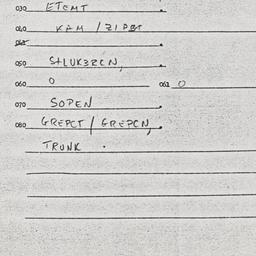 030 ETCMT
040 KAM / ZIPBT
045
050 S+LUK3RCN,
060 0 061 0
070 SOPEN
080 GREPCT / GREPCN,
TRUNK .